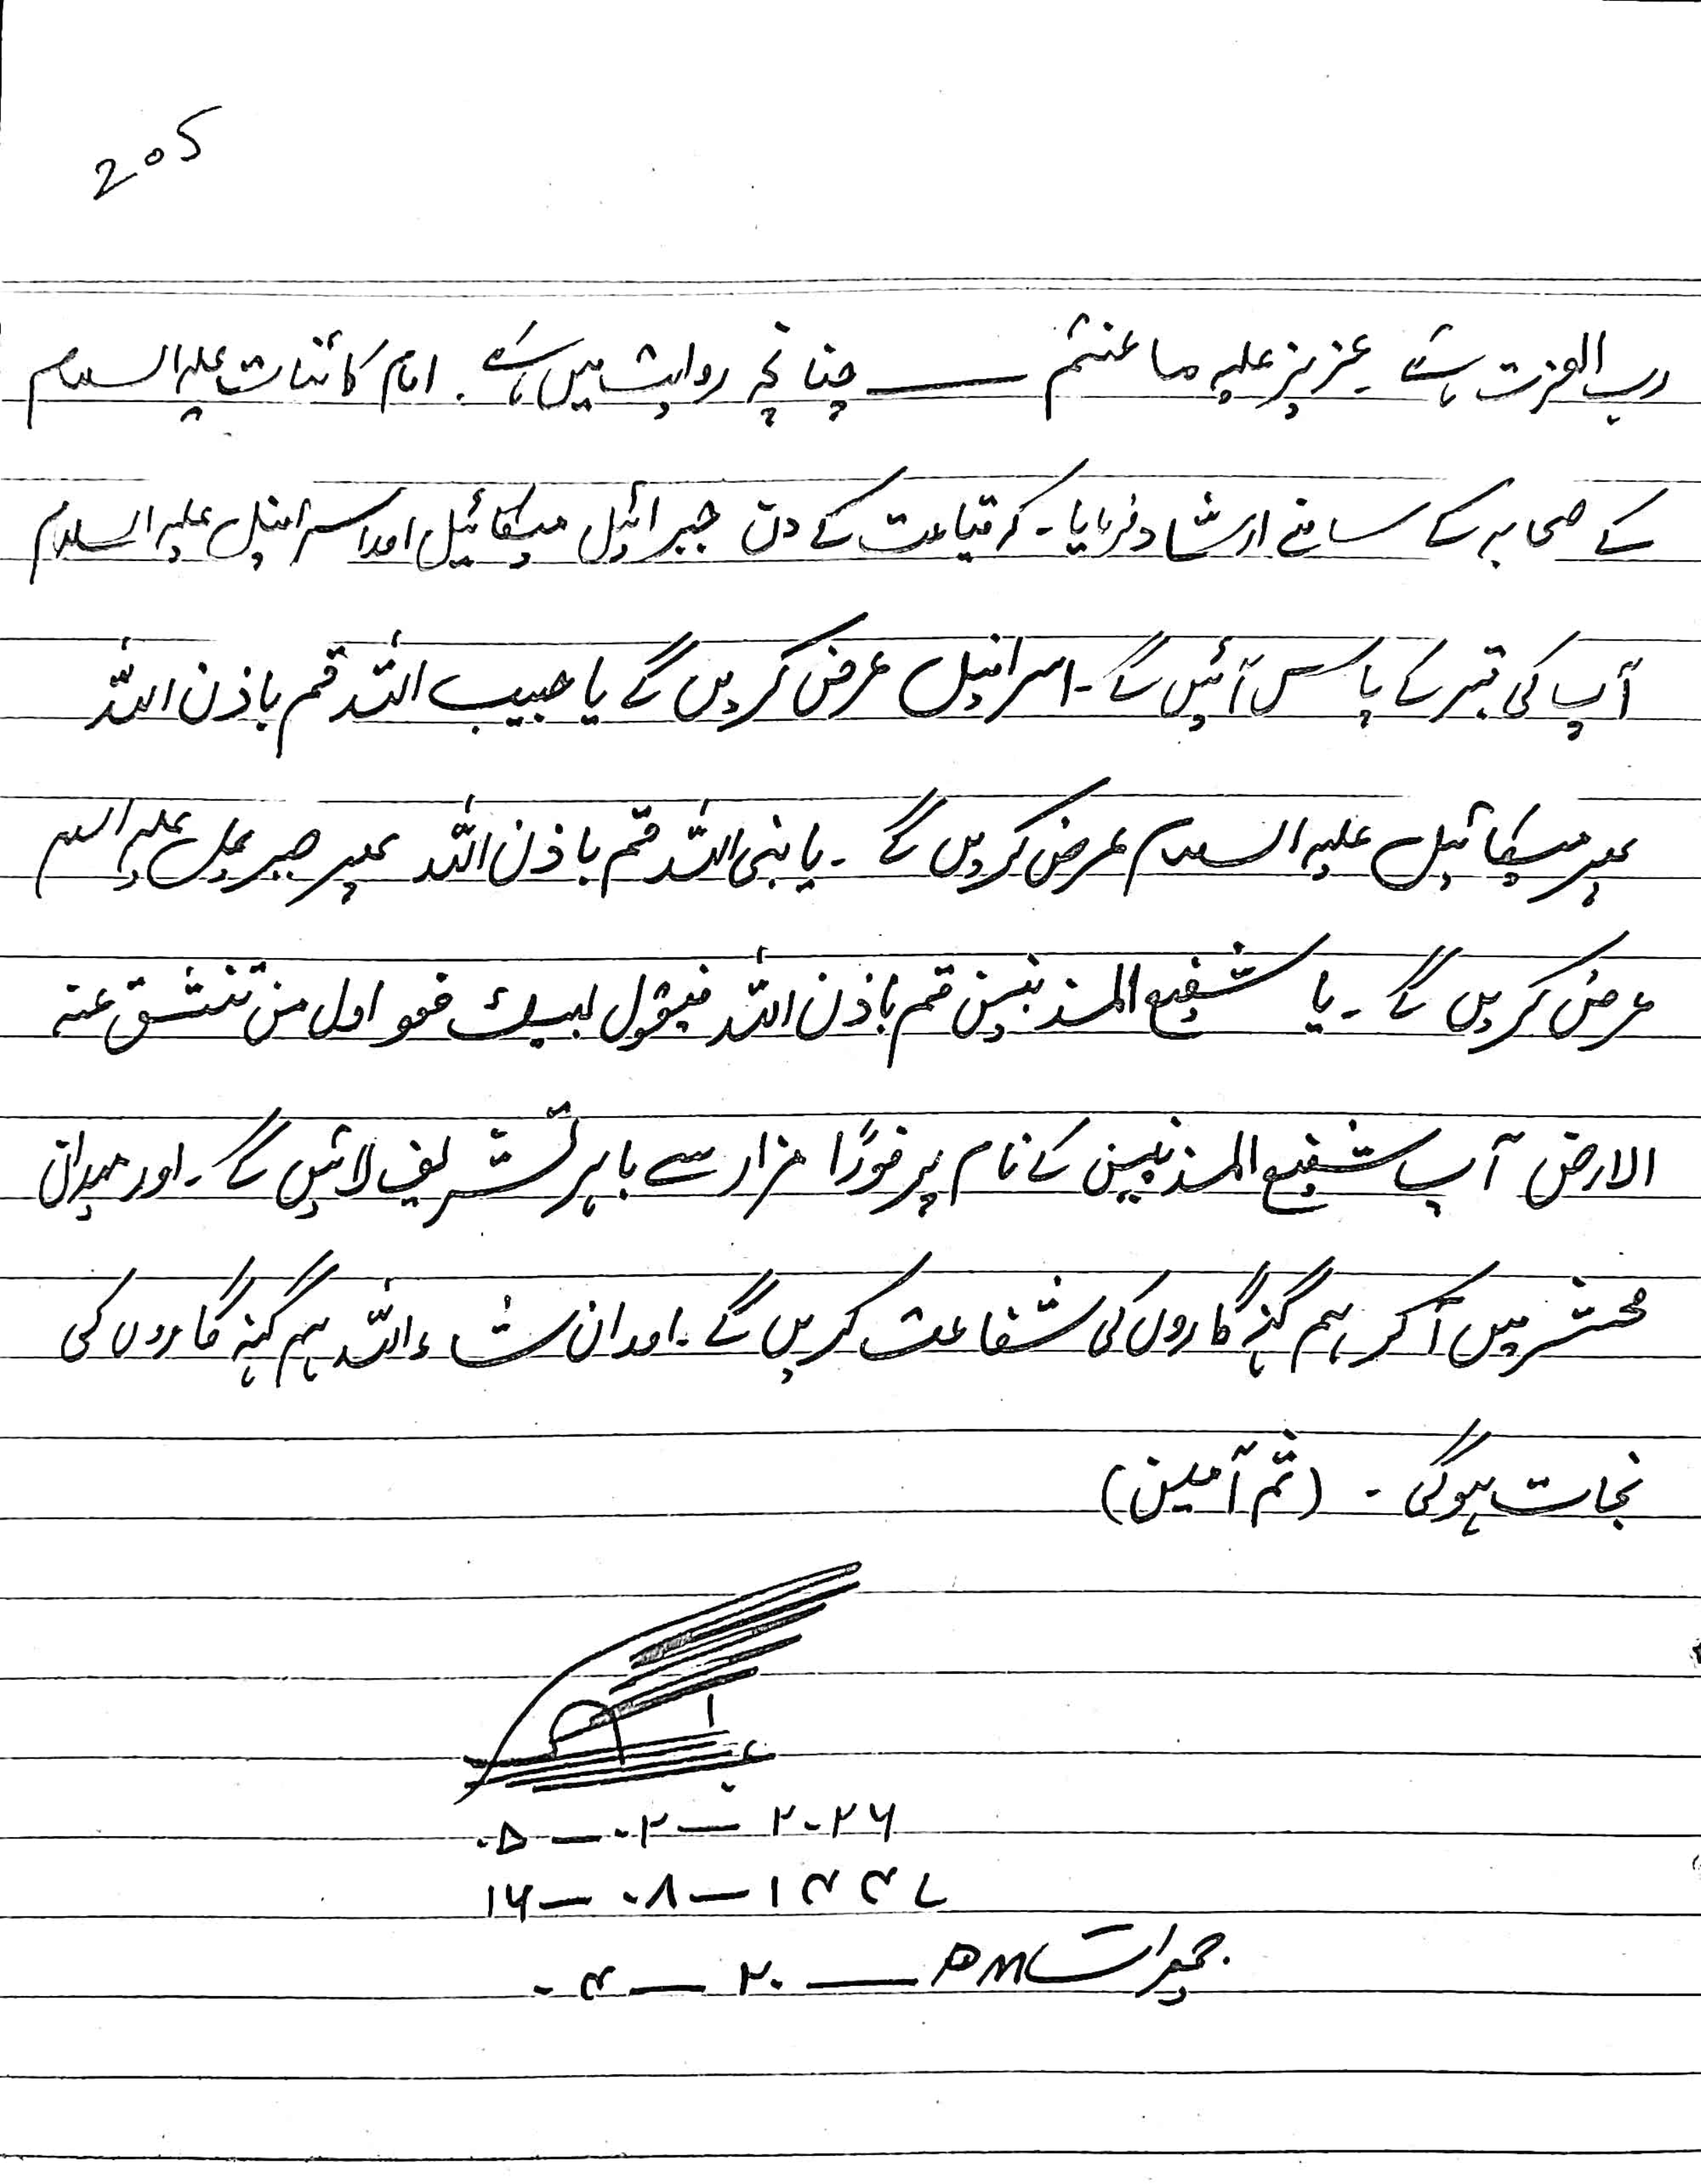 205
رب العزت ہے عزیز علیہ ما عنتم ــــــ چنانچہ روایت میں ہے۔ امام کائنات علیہ السلام
کے صحابہ کے سامنے ارشاد فرمایا۔ کہ قیامت کے دن جبرائیل میکائیل اور اسرافیل علیہ السلام
آپ کی قبر کے پاس آئیں گے۔ اسرافیل عرض کریں گے یا حبیب اللہ قم باذن اللہ
پھر میکائیل علیہ السلام عرض کریں گے ۔ یا نبی اللہ قم باذن اللہ پھر جبریل علیہ السلام
عرض کریں گے ۔ یا شفیع المذنبین قم باذن اللہ فیقول لبیک فھو اول من تنشق عنہ
الارض آپ شفیع المذنبین کے نام پر فوراً مزار سے باہر تشریف لائیں گے۔ اور میدان
محشر میں آ کر ہم گنہگاروں کی شفاعت کریں گے۔ اور ان شاء اللہ ہم گنہ گاروں کی
نجات ہوگی ۔ (ثم آمین)
۰۵ — ۰۲ — ۲۰۲۶
۱۶ — ۰۸ — ۱۴۴۷
جمعرات PM — ۲۰ — ۰۴